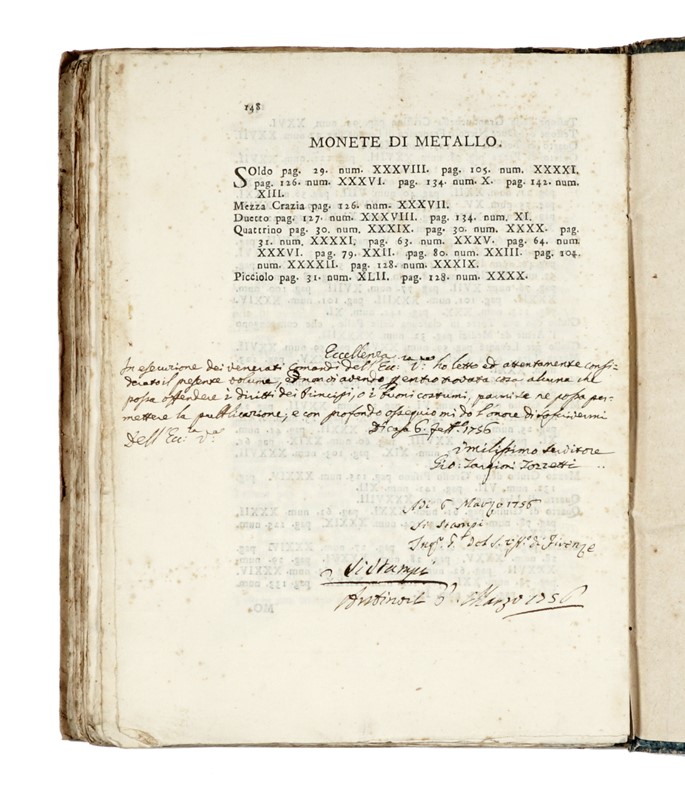 148
MONETE DI METALLO.
SOldo pag. 29. num. XXXVIII. pag. 105. num. XXXXI.
pag. 126. num. XXXVI. pag. 134. num. X. pag. 142. num.
XIII.
Mezza Crazia pag. 126. num. XXXVII.
Duetto pag. 127. num. XXXVIII. pag. 134. num. XI.
Quattrino pag. 30. num. XXXIX. pag. 30. num. XXXX. pag.
31. num. XXXXI. pag. 63. num. XXXV. pag. 64. num.
XXXVI. pag. 79. XXII. pag. 80. num. XXIII. pag. 104.
num. XXXXII. pag. 128. num. XXXIX.
Picciolo pag. 31. num. XLII. pag. 128. num. XXXX.
Eccellenza
In esecuzione dei venerati Comandi dell'Ecc: V:ra ho letto ed attentamente consi-
derato il presente volume, ed non ci avendo dentro trovata cosa alcuna che
possa offendere i diritti dei Principi, o i buoni costumi, parmi se ne possa per-
mettere la pubblicazione, e con profondo ossequio mi do l'onore di soscrivermi
Dell'Ecc: V:ra
Di Casa 6. Febb. 1756
Umilissimo Servitore
Gio: Targioni Tozzetti
Adì 6 Marzo 1756
Si Stampi
Inq. G. del S. Uff. di Firenze
Si Stampi
6. Marzo 1756
MO.